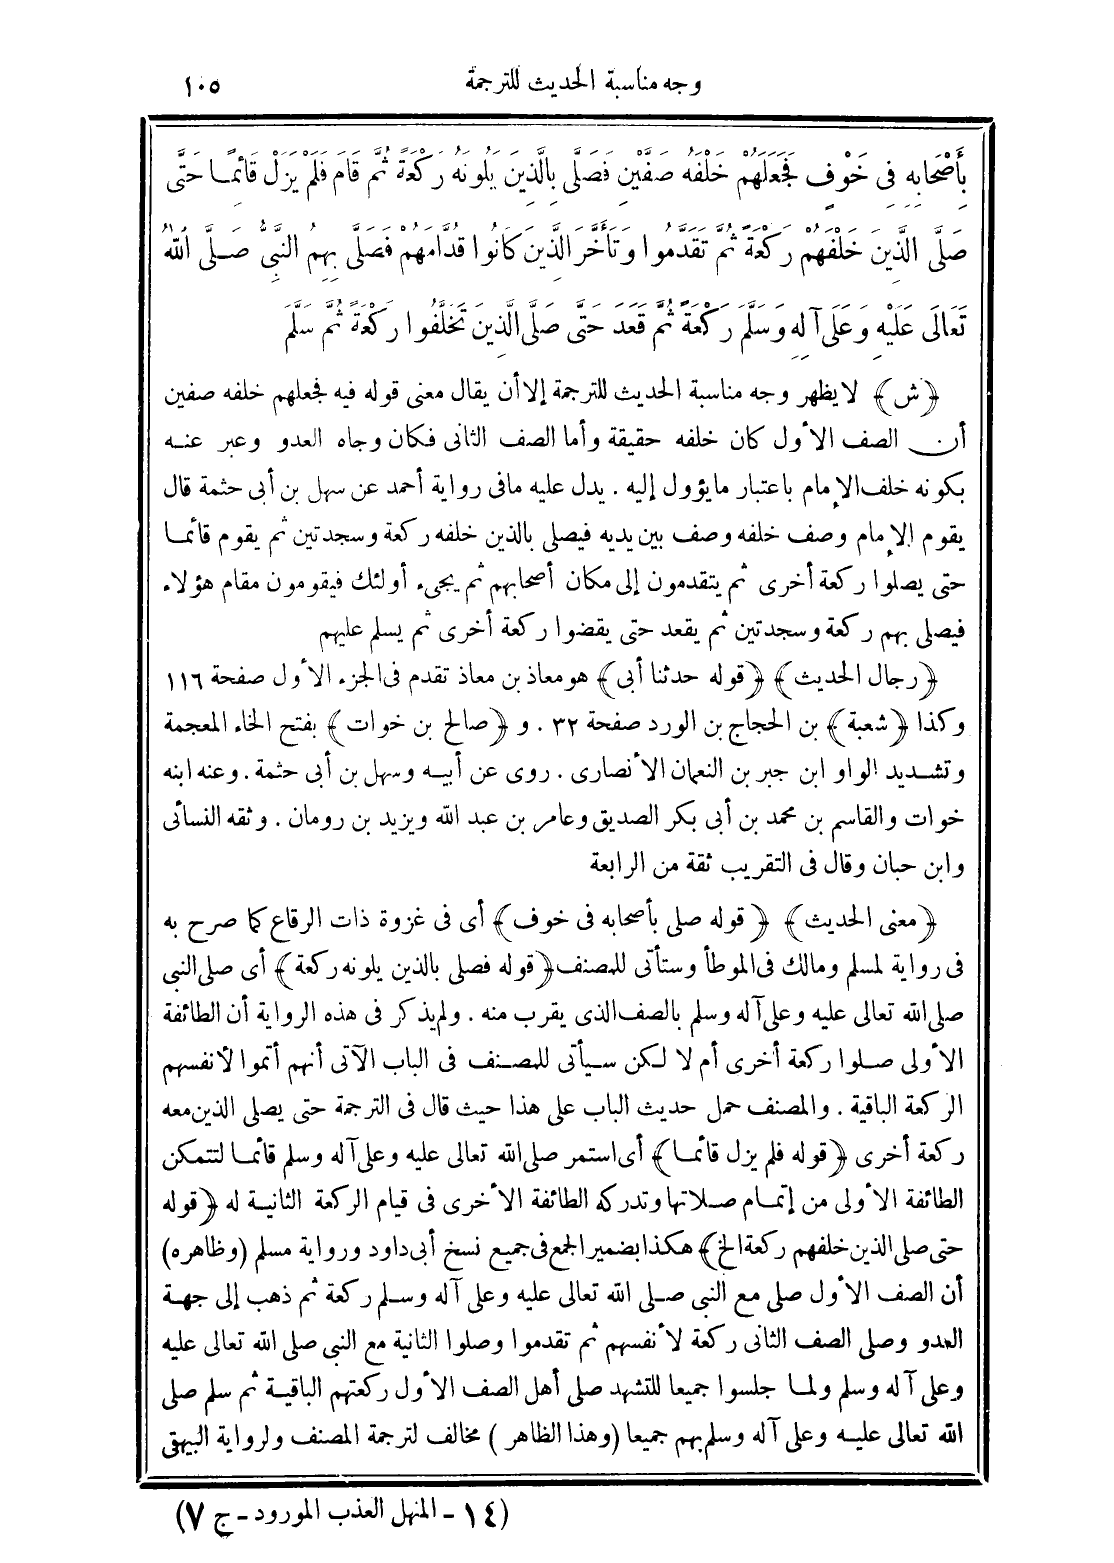 وجه مناسبة الحديث للترجمة ١٠٥
بِأَصْحَابِهِ فِي خَوْفٍ فَجَعَلَهُمْ خَلْفَهُ صَفَّيْنِ فَصَلَّى بِالَّذِينَ يَلُونَهُ رَكْعَةً ثُمَّ قَامَ فَلَمْ يَزَلْ قَائِمًا حَتَّى
صَلَّى الَّذِينَ خَلْفَهُمْ رَكْعَةً ثُمَّ تَقَدَّمُوا وَتَأَخَّرَ الَّذِينَ كَانُوا قُدَّامَهُمْ فَصَلَّى بِهِمُ النَّبِيُّ صَلَّى اللهُ
تَعَالَى عَلَيْهِ وَعَلَى آلِهِ وَسَلَّمَ رَكْعَةً ثُمَّ قَعَدَ حَتَّى صَلَّى الَّذِينَ تَخَلَّفُوا رَكْعَةً ثُمَّ سَلَّمَ
﴿ش﴾ لا يظهر وجه مناسبة الحديث للترجمة إلا أن يقال معنى قوله فيه فجعلهم خلفه صفين
أن الصف الأول كان خلفه حقيقة وأما الصف الثانى فكان وجاه العدو وعبر عنه
بكونه خلف الإمام باعتبار ما يؤول إليه . يدل عليه مافى رواية أحمد عن سهل بن أبى حثمة قال
يقوم الإمام وصف خلفه وصف بين يديه فيصلى بالذين خلفه ركعة وسجدتين ثم يقوم قائما
حتى يصلوا ركعة أخرى ثم يتقدمون إلى مكان أصحابهم ثم يجىء أولئك فيقومون مقام هؤلاء
فيصلى بهم ركعة وسجدتين ثم يقعد حتى يقضوا ركعة أخرى ثم يسلم عليهم
﴿رجال الحديث﴾ ﴿قوله حدثنا أبى﴾ هو معاذ بن معاذ تقدم فى الجزء الأول صفحة ١١٦
وكذا ﴿شعبة﴾ بن الحجاج بن الورد صفحة ٣٢ . و ﴿صالح بن خوات﴾ بفتح الخاء المعجمة
وتشديد الواو ابن جبر بن النعمان الأنصارى . روى عن أبيه وسهل بن أبى حثمة . وعنه ابنه
خوات والقاسم بن محمد بن أبى بكر الصديق وعامر بن عبد الله ويزيد بن رومان . وثقه النسائى
وابن حبان وقال فى التقريب ثقة من الرابعة
﴿معنى الحديث﴾ ﴿قوله صلى بأصحابه فى خوف﴾ أى فى غزوة ذات الرقاع كما صرح به
فى رواية لمسلم ومالك فى الموطأ وستأتى للمصنف ﴿قوله فصلى بالذين يلونه ركعة﴾ أى صلى النبى
صلى الله تعالى عليه وعلى آله وسلم بالصف الذى يقرب منه . ولم يذكر فى هذه الرواية أن الطائفة
الأولى صلوا ركعة أخرى أم لا لكن سيأتى للمصنف فى الباب الآتى أنهم أتموا لأنفسهم
الركعة الباقية . والمصنف حمل حديث الباب على هذا حيث قال فى الترجمة حتى يصلى الذين معه
ركعة أخرى ﴿قوله فلم يزل قائما﴾ أى استمر صلى الله تعالى عليه وعلى آله وسلم قائما لتتمكن
الطائفة الأولى من إتمام صلاتها وتدركه الطائفة الأخرى فى قيام الركعة الثانية له ﴿قوله
حتى صلى الذين خلفهم ركعة الخ﴾ هكذا بضمير الجمع فى جميع نسخ أبى داود ورواية مسلم (وظاهره)
أن الصف الأول صلى مع النبى صلى الله تعالى عليه وعلى آله وسلم ركعة ثم ذهب إلى جهة
العدو وصلى الصف الثانى ركعة لأنفسهم ثم تقدموا وصلوا الثانية مع النبى صلى الله تعالى عليه
وعلى آله وسلم ولما جلسوا جميعا للتشهد صلى أهل الصف الأول ركعتهم الباقية ثم سلم صلى
الله تعالى عليه وعلى آله وسلم بهم جميعا (وهذا الظاهر) مخالف لترجمة المصنف ولرواية البيهقى
(١٤ - المنهل العذب المورود - ج ٧)